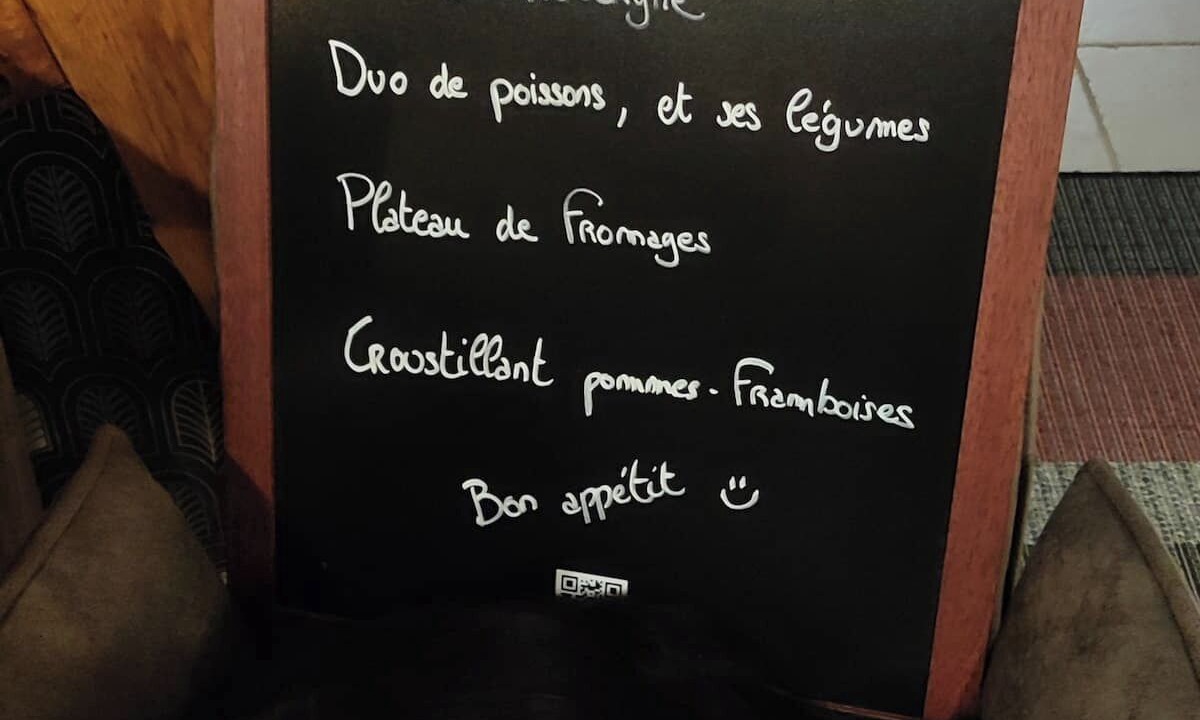 Duo de poissons, et ses légumes
Plateau de Fromages
Croustillant pommes-Framboises
Bon appétit